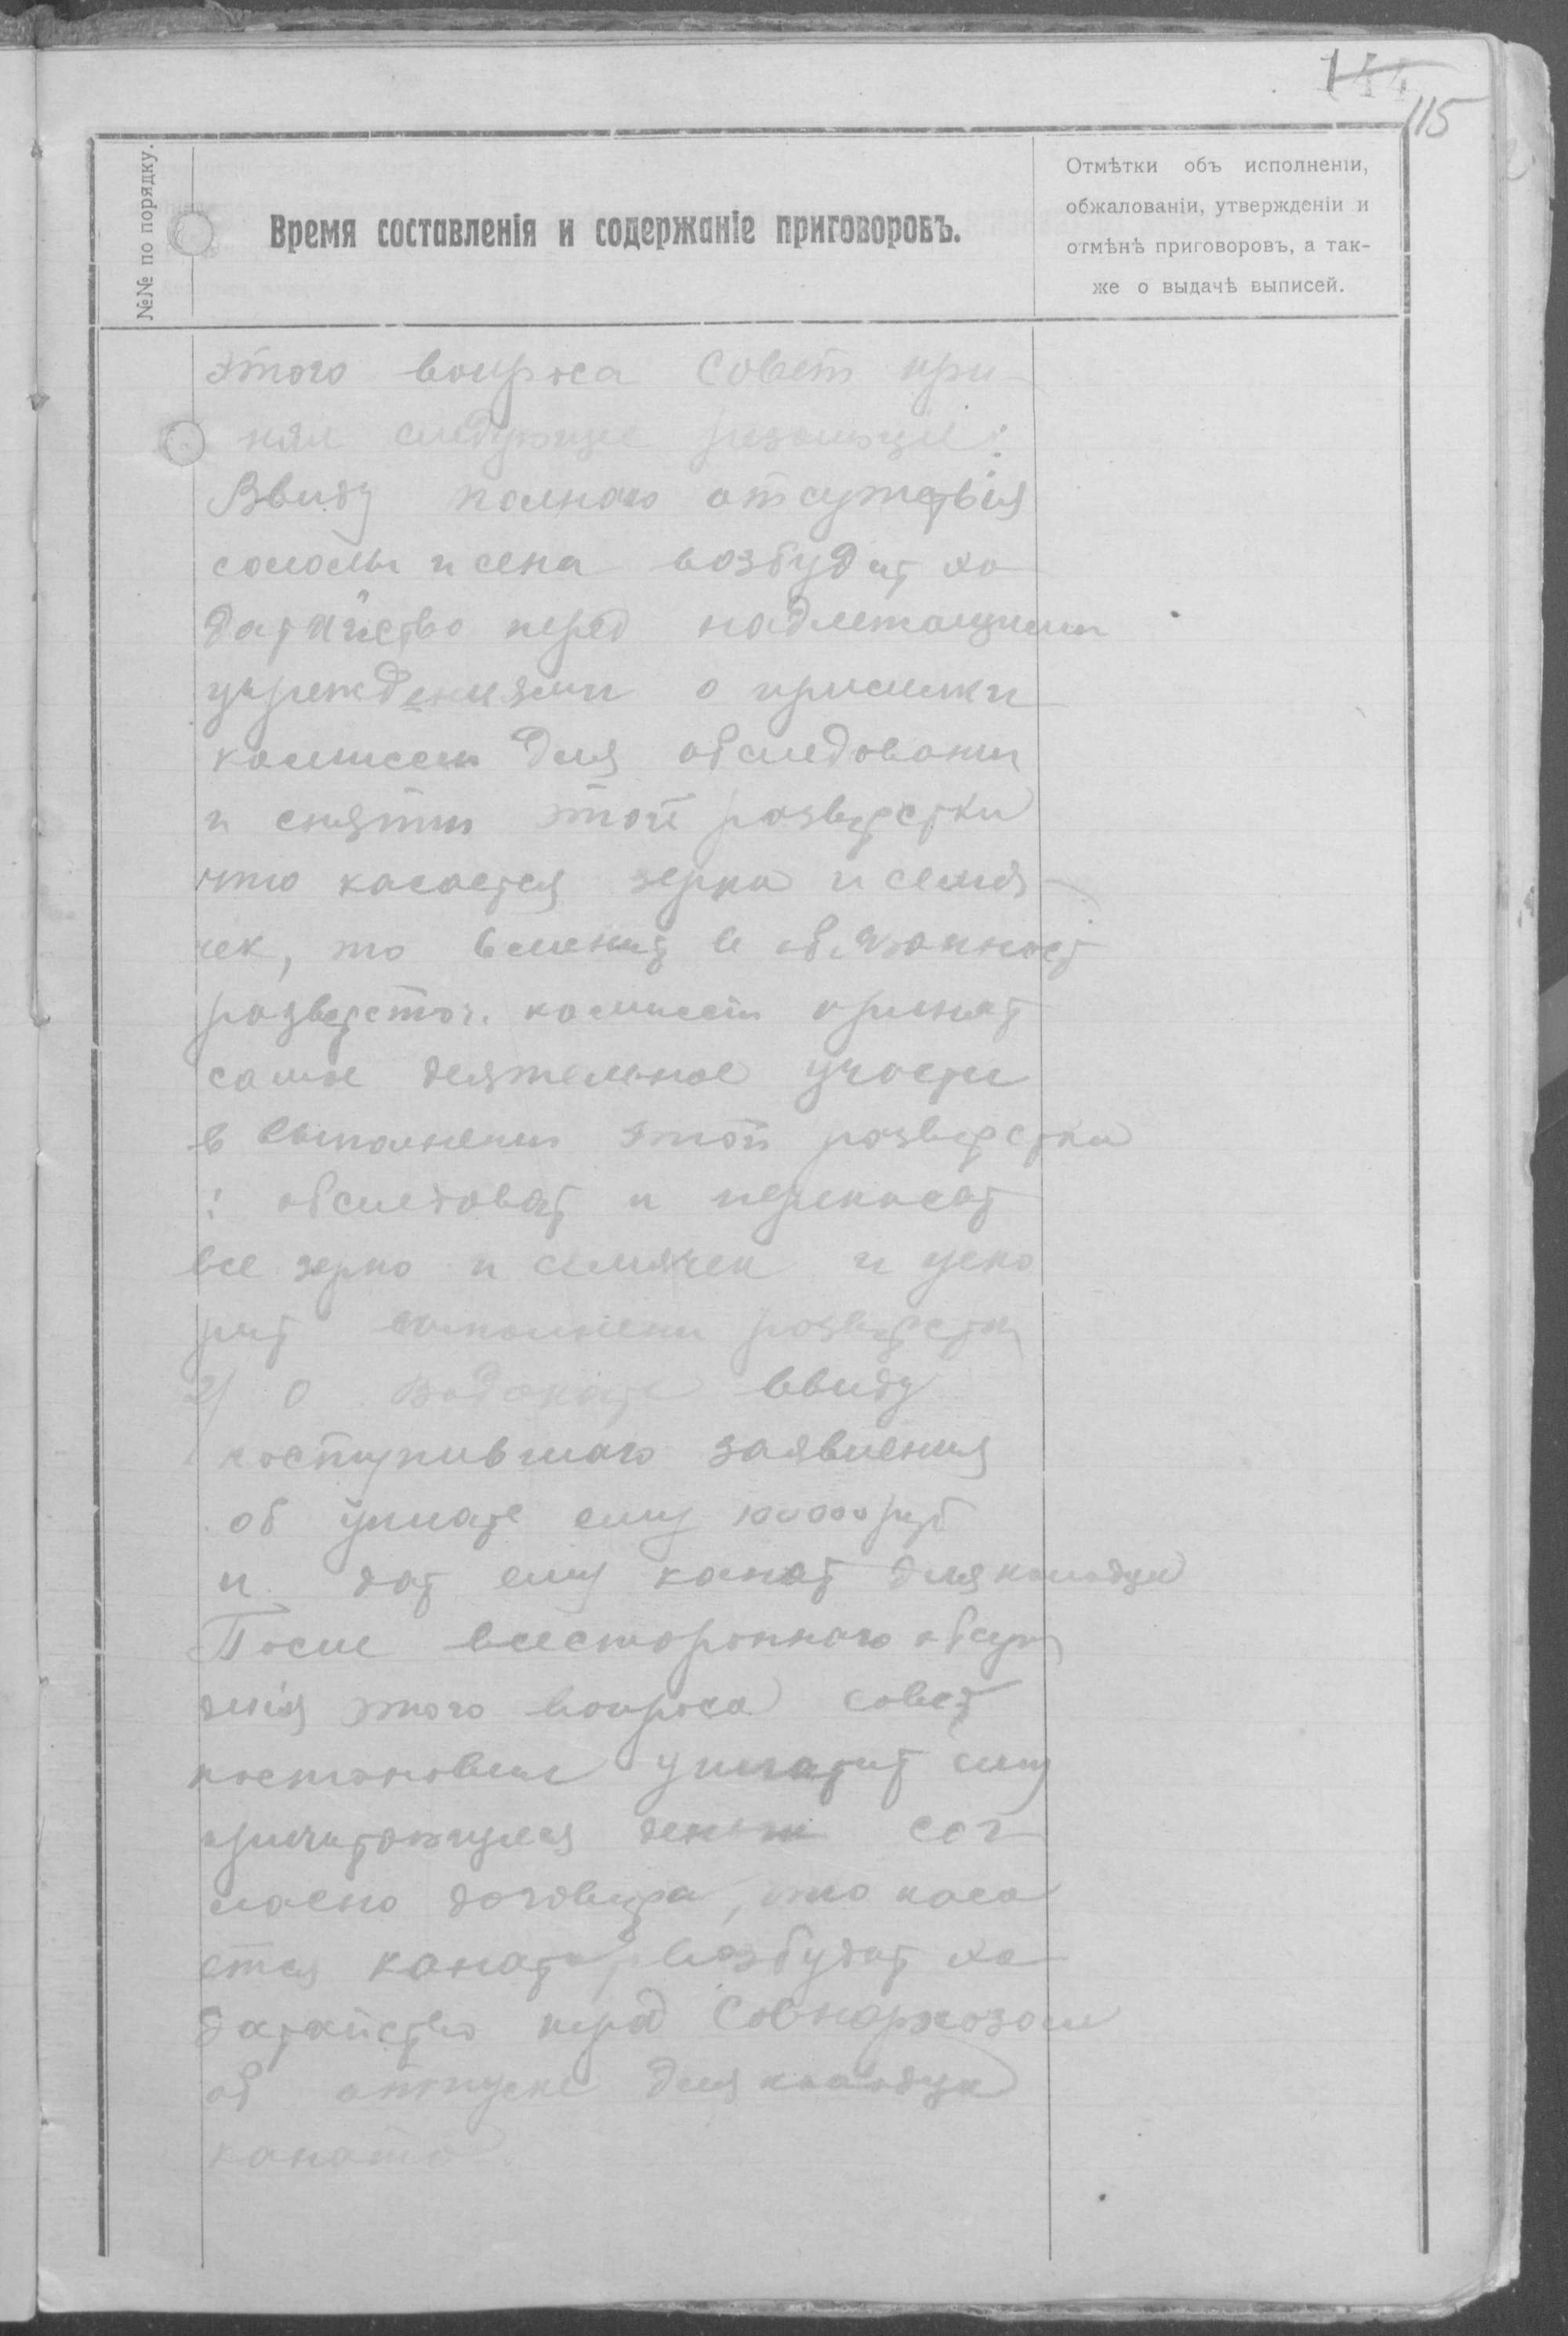 144
115
№№ по порядку.
Время составленія и содержаніе приговоровъ.
Отмѣтки объ исполненіи,
обжалованіи, утвержденіи и
отмѣнѣ приговоровъ, а так-
же о выдачѣ выписей.
этого вопроса Совет при
нял следующие резолюцие:
Ввиду полнаго отсутствія
соломы и сена возбудит хо
датайство перед надлежащими
учреждениями о присылки
комиссии для обследования
и снятии этой разверстки
что касается зерна и семя
чек, то вменит в обязанност
разверсточ. комиссии принят
самое деятельное участие
в выполнении этой разверстки
: обследоват и переписат
все зерно и семячек и уско
рит выполнени разверстки
2) О водокате ввиду
поступившаго заявления
об уплате ему 100000 руб
и дат ему канат для колодца
После всесторонняго обсуж
дения этого вопроса совет
постановил уплатит ему
причитающиеся деньги сог
ласно договора, что каса
ется каната, возбудит хо
датайство перед Совнархозом
об отпуске для колодца
каната.